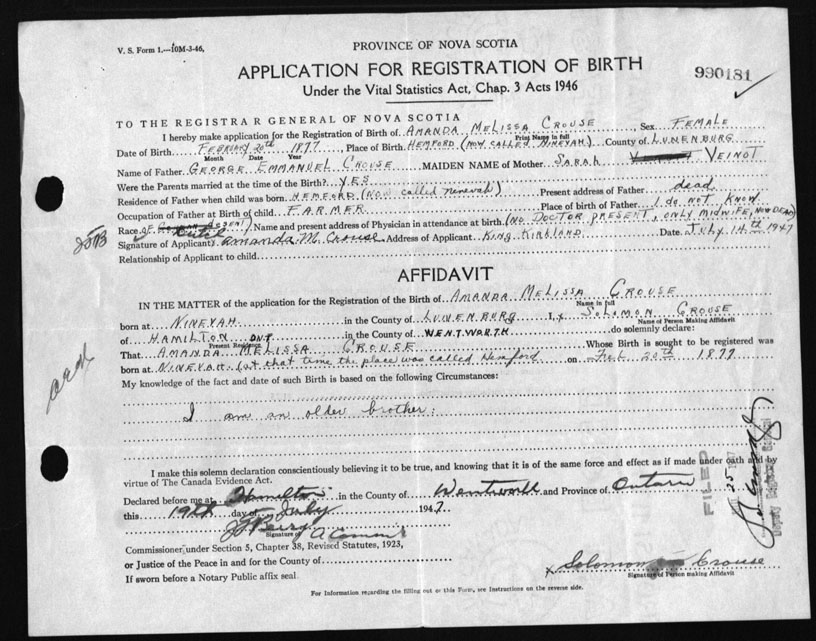 V. S. Form 1.—10M-3-46.
PROVINCE OF NOVA SCOTIA
APPLICATION FOR REGISTRATION OF BIRTH
990181
Under the Vital Statistics Act, Chap. 3 Acts 1946
TO THE REGISTRAR GENERAL OF NOVA SCOTIA
I hereby make application for the Registration of Birth of AMANDA MELISSA CROUSE Sex FEMALE
Print Name in full
Date of Birth FEBRUARY 20th 1877, Place of Birth HEMFORD (NOW CALLED NINEVAH) County of LUNENBURG
Month Date Year
Name of Father GEORGE EMMANUEL CROUSE MAIDEN NAME of Mother SARAH VEINOT
Were the Parents married at the time of the Birth? YES
Residence of Father when child was born HEMFORD (NOW called Ninevah) Present address of Father dead
Occupation of Father at Birth of child FARMER Place of Birth of Father I do NOT KNOW
Race of DESCENT) Name and present address of Physician in attendance at birth (NO DOCTOR PRESENT, ONLY MIDWIFE, NOW DEAD)
Signature of Applicant Amanda M. Crouse Address of Applicant KING KIRKLAND Date July 14th 1947
Relationship of Applicant to child
AFFIDAVIT
IN THE MATTER of the application for the Registration of the Birth of AMANDA MELISSA CROUSE
Name in full
born at NINEVAH in the County of LUNENBURG I, SOLOMON CROUSE
Name of Person Making Affidavit
of HAMILTON ONT in the County of WENTWORTH do solemnly declare:
Present Residence
That AMANDA MELISSA CROUSE Whose Birth is sought to be registered was
born at NINEVAH (at that time the place was called Hemford on Feb 20th 1877
My knowledge of the fact and date of such Birth is based on the following Circumstances:
I am an older brother.
I make this solemn declaration conscientiously believing it to be true, and knowing that it is of the same force and effect as if made under oath and by
virtue of The Canada Evidence Act.
Declared before me at Hamilton in the County of Wentworth and Province of Ontario
this 19th day of July 1947
Signature of
A Comm
Commissioner under Section 5, Chapter 38, Revised Statutes, 1923,
or Justice of the Peace in and for the County of
If sworn before a Notary Public affix seal
Solomon Crouse
Signature of Person making Affidavit
FILED
For Information regarding the filling out of this Form, see Instructions on the reverse side.